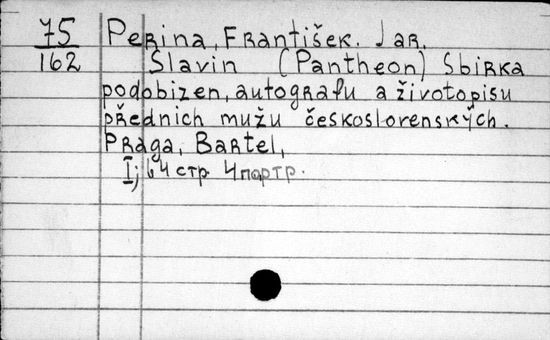 75 Perina, František. Jar.
162 Slavin (Pantheon) Sbirka
podobizen, autografu a životopisu
přednich mužu českoslorenských.
Praga, Bartel,
I; 64 стр 4 портр.